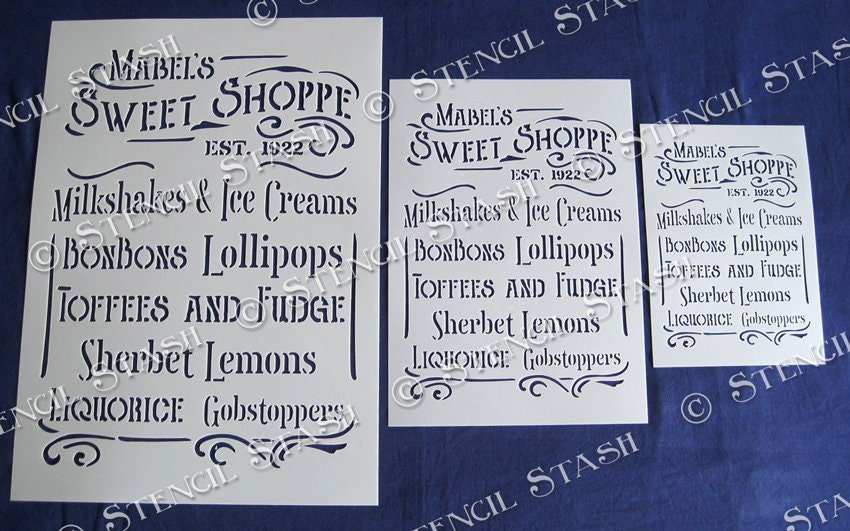 MABEL'S
SWEET SHOPPE
EST. 1922
Milkshakes & Ice Creams
BONBONS Lollipops
TOFFEES AND FUDGE
Sherbet Lemons
LIQUORICE Gobstoppers
MABEL'S
SWEET SHOPPE
EST. 1922
Milkshakes & Ice Creams
BONBONS Lollipops
TOFFEES AND FUDGE
Sherbet Lemons
LIQUORICE Gobstoppers
MABEL'S
SWEET SHOPPE
EST. 1922
Milkshakes & Ice Creams
BONBONS Lollipops
TOFFEES AND FUDGE
Sherbet Lemons
LIQUORICE Gobstoppers
© STENCIL STASH
© STENCIL STASH
© STENCIL STASH
© STENCIL STASH
© STENCIL STASH
© STENCIL STASH
© STENCIL STASH